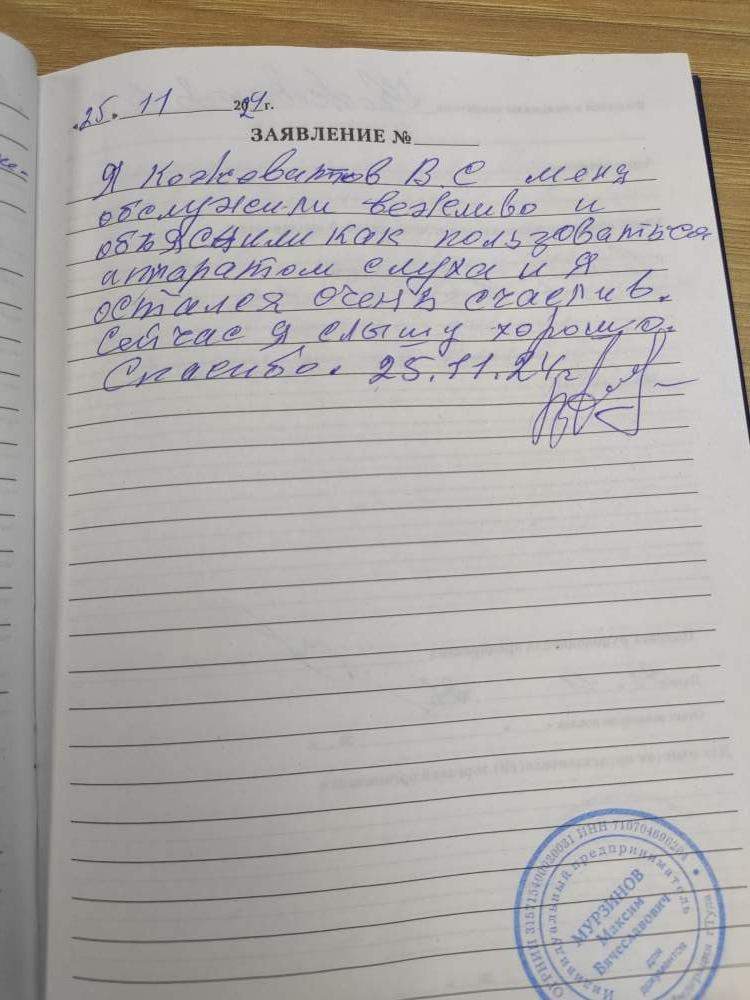 «25» 11 2024 г.
ЗАЯВЛЕНИЕ №
Я Кожеватов В. С меня
обслужили вежливо и
объяснили как пользоваться
аппаратом слуха и я
остался очень счастлив.
Сейчас я слышу хорошо.
Спасибо. 25.11.24г
Индивидуальный предприниматель
МУРЗИНОВ
Максим
Вячеславович
Для
документов